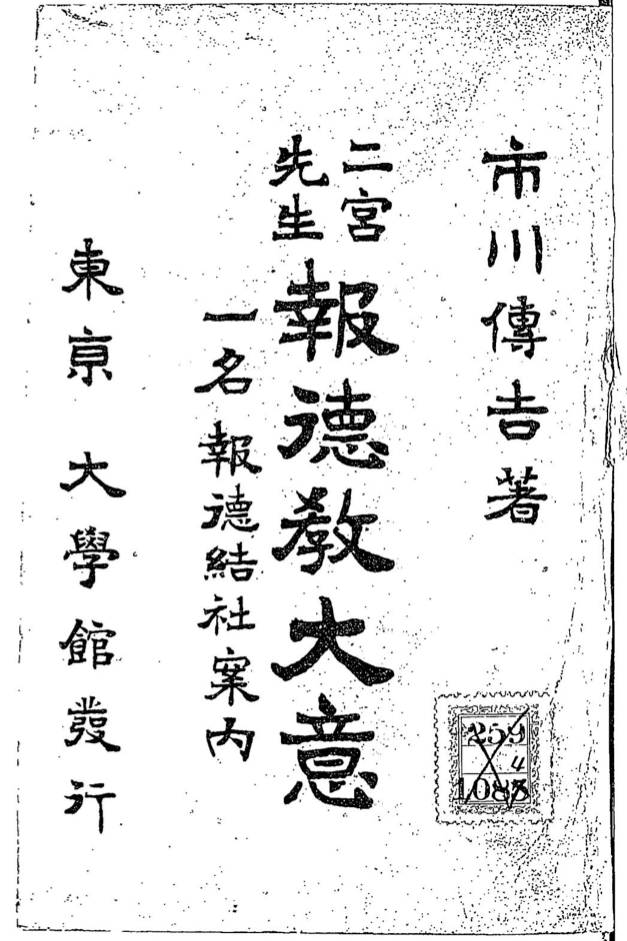 市川傳吉著
二宮先生 報德教大意
一名 報德結社案内
東京 大學館發行
259
4
108